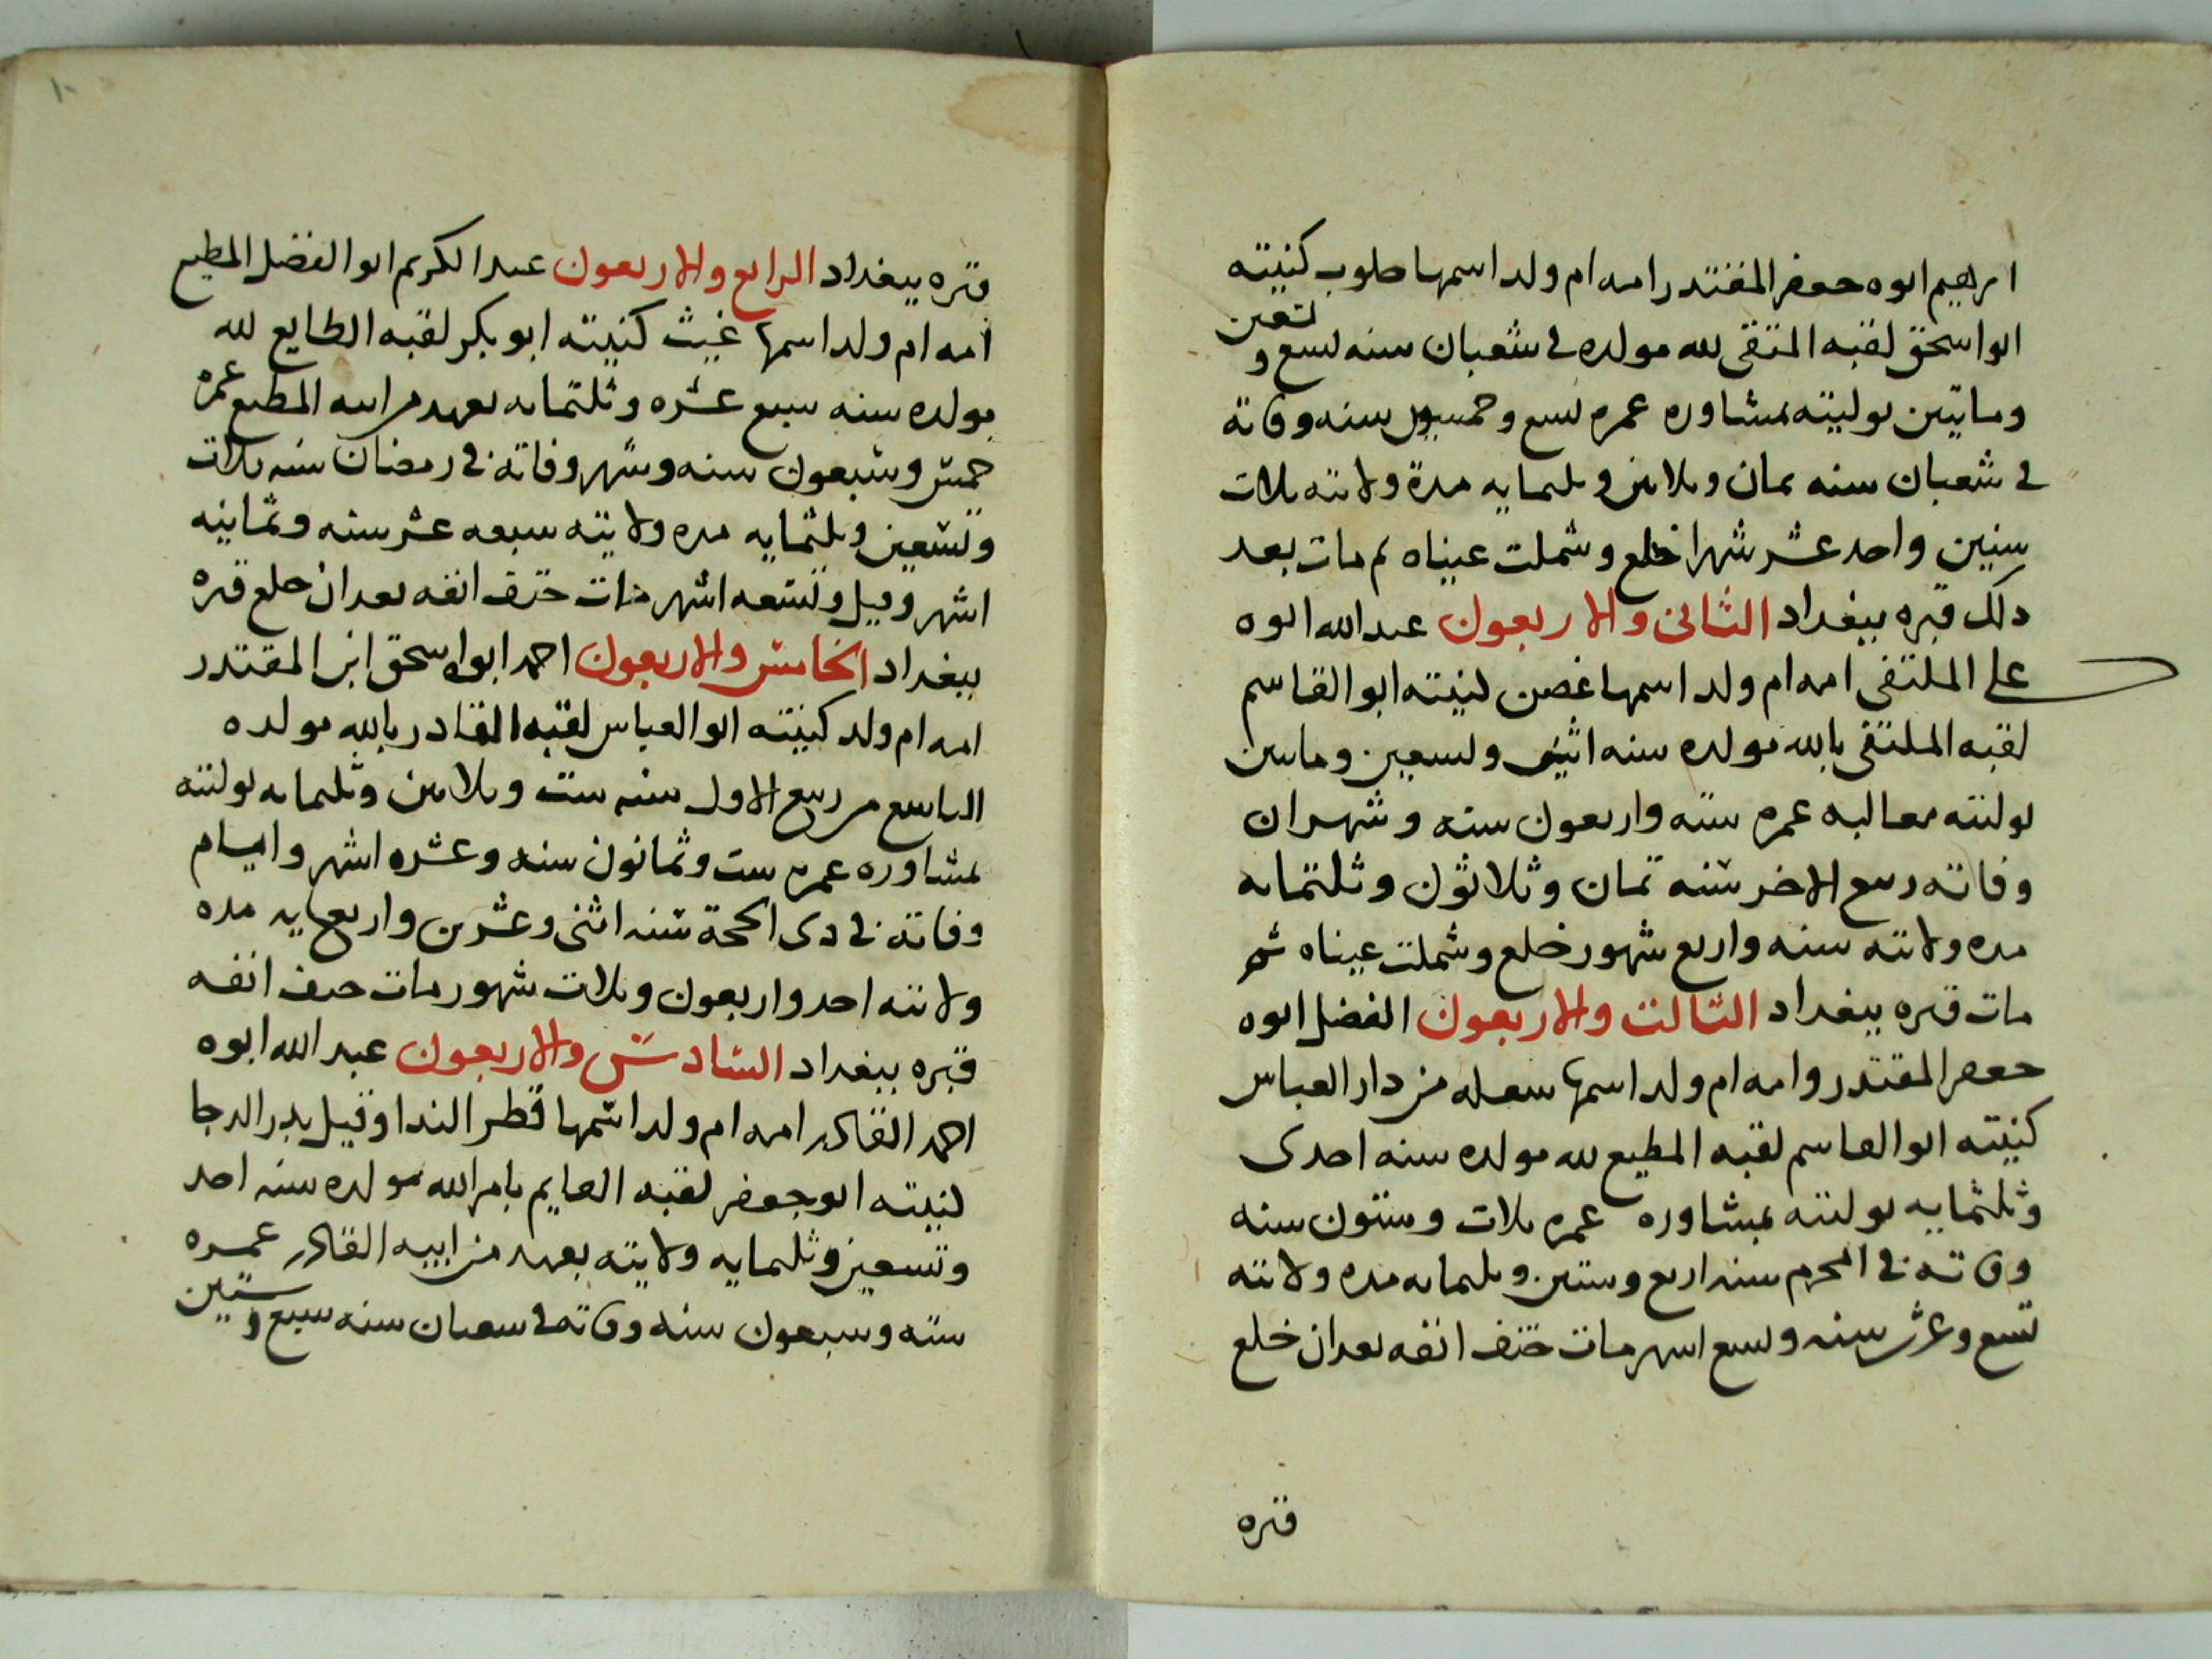 ابرهيم ابوه جعفر المقتدر امه ام ولد اسمها حلوب كنيته
ابو اسحق لقبه المتقى لله مولده فى شعبان سنه تسع و تسعين
وماتين توليته بمشاوره عمره تسع وخمسون سنه وفاته
فى شعبان سنه ثمان وثلاثين وثلثمايه مدة ولايته ثلاث
سنين واحد عشر شهرا خلع وشملت عيناه ثم مات بعد
ذلك قبره ببغداد الثانى والاربعون عبد الله ابوه
على المكتفى امه ام ولد اسمها غصن كنيته ابو القاسم
لقبه المكتفى بالله مولده سنه اثنين وتسعين وماتين
توليته مغالبه عمره سته واربعون سنه وشهران
وفاته ربيع الاخر سنه ثمان وثلاثون وثلثمايه
مده ولايته سنه واربع شهور خلع وشملت عيناه ثم
مات قبره ببغداد الثالث والاربعون الفضل ابوه
جعفر المقتدر وامه ام ولد اسمها من دار العباس
كنيته ابو القاسم لقبه المطيع لله مولده سنه احدى
وثلثمايه توليته بمشاوره عمره ثلاث وستون سنه
وفاته فى المحرم سنه اربع وستين وثلثمايه مده ولايته
تسع وعشر سنه وتسع اشهر مات حتف انفه بعد ان خلع
قبره
١٠
قبره ببغداد الرابع والاربعون عبد الكريم ابو الفضل المطيع
امه ام ولد اسمها غيث كنيته ابو بكر لقبه الطايع لله
مولده سنه سبع عشره وثلثمايه بعهد من ابيه المطيع عمره
خمس وسبعون سنه وشهر وفاته فى رمضان سنه ثلاث
وتسعين وثلثمايه مده ولايته سبعه عشر سنه وثمانيه
اشهر وقيل وتسعه اشهر مات حتف انفه بعد ان خلع قبره
ببغداد الخامس والاربعون احمد ابو اسحق ابن المقتدر
امه ام ولد كنيته ابو العباس لقبه القادر بالله مولده
التاسع من ربيع الاول سنه ست وثلاثين وثلثمايه توليته
بمشاوره عمره ست وثمانون سنه وعشره اشهر وايام
وفاته فى ذى الحجة سنه اثنى وعشرين واربعمايه مده
ولايته احد واربعون وثلاث شهور مات حتف انفه
قبره ببغداد السادس والاربعون عبد الله ابوه
احمد القادر امه ام ولد اسمها قطر الندا وقيل بدر الدجا
كنيته ابو جعفر لقبه القايم بامر الله مولده سنه احد
وتسعين وثلثمايه ولايته بعهد من ابيه القادر عمره
سته وسبعون سنه وفاته فى شعبان سنه سبع وستين